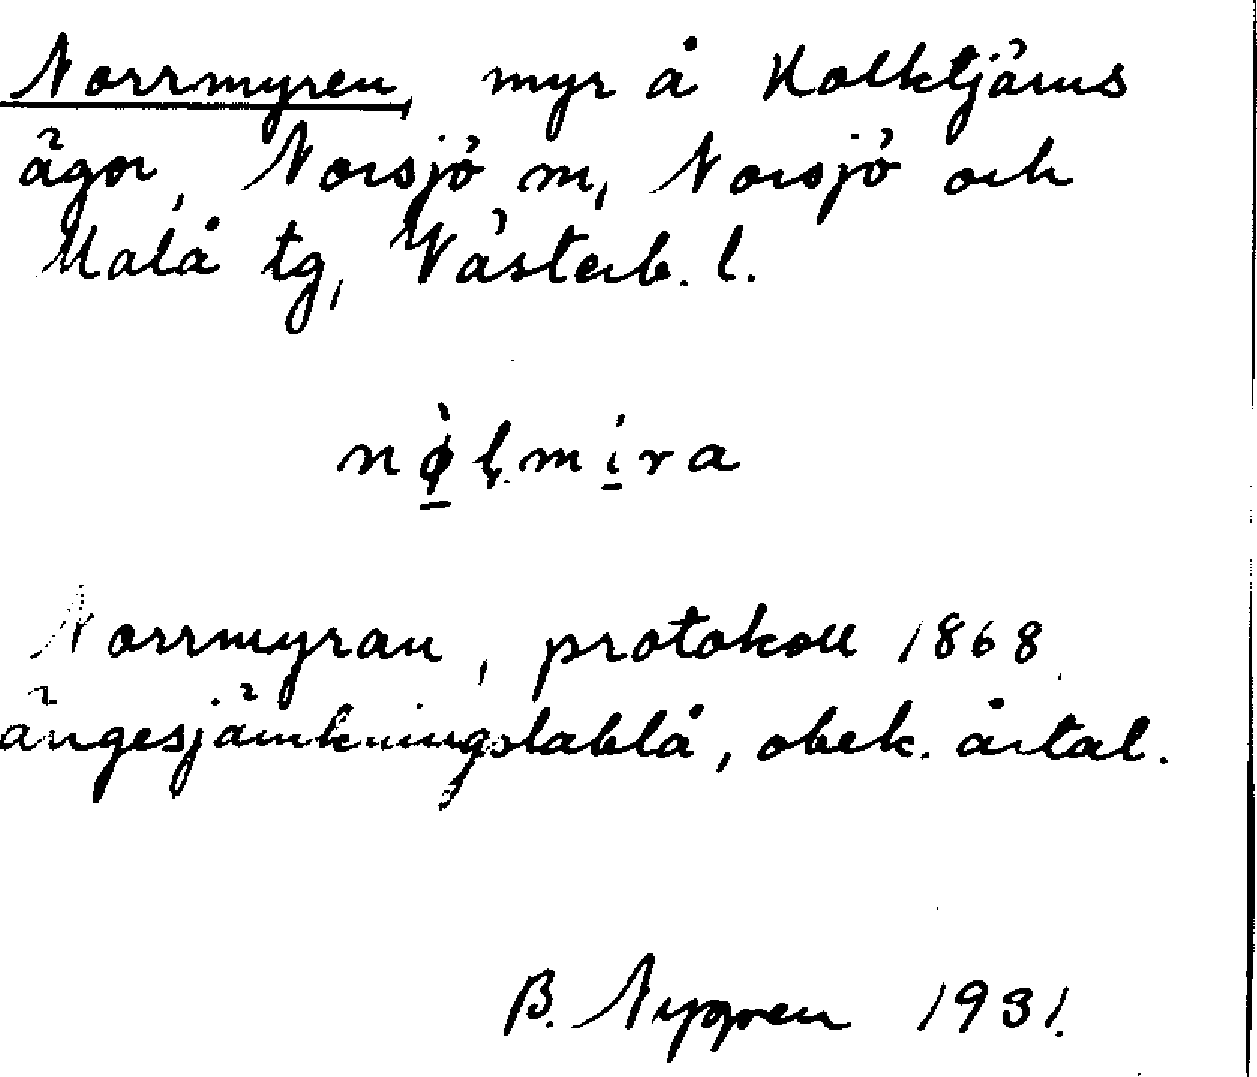 Norrmyren, myr å Kolktjärns
ägor, Norsjö m, Norsjö och
Malå tg, Västerb. l.
nø̱̀l̥mi̱̇ra
Norrmyran, protokoll 1868
ängesjämkningstablå, obek. årtal.
B. Nygren 1931.